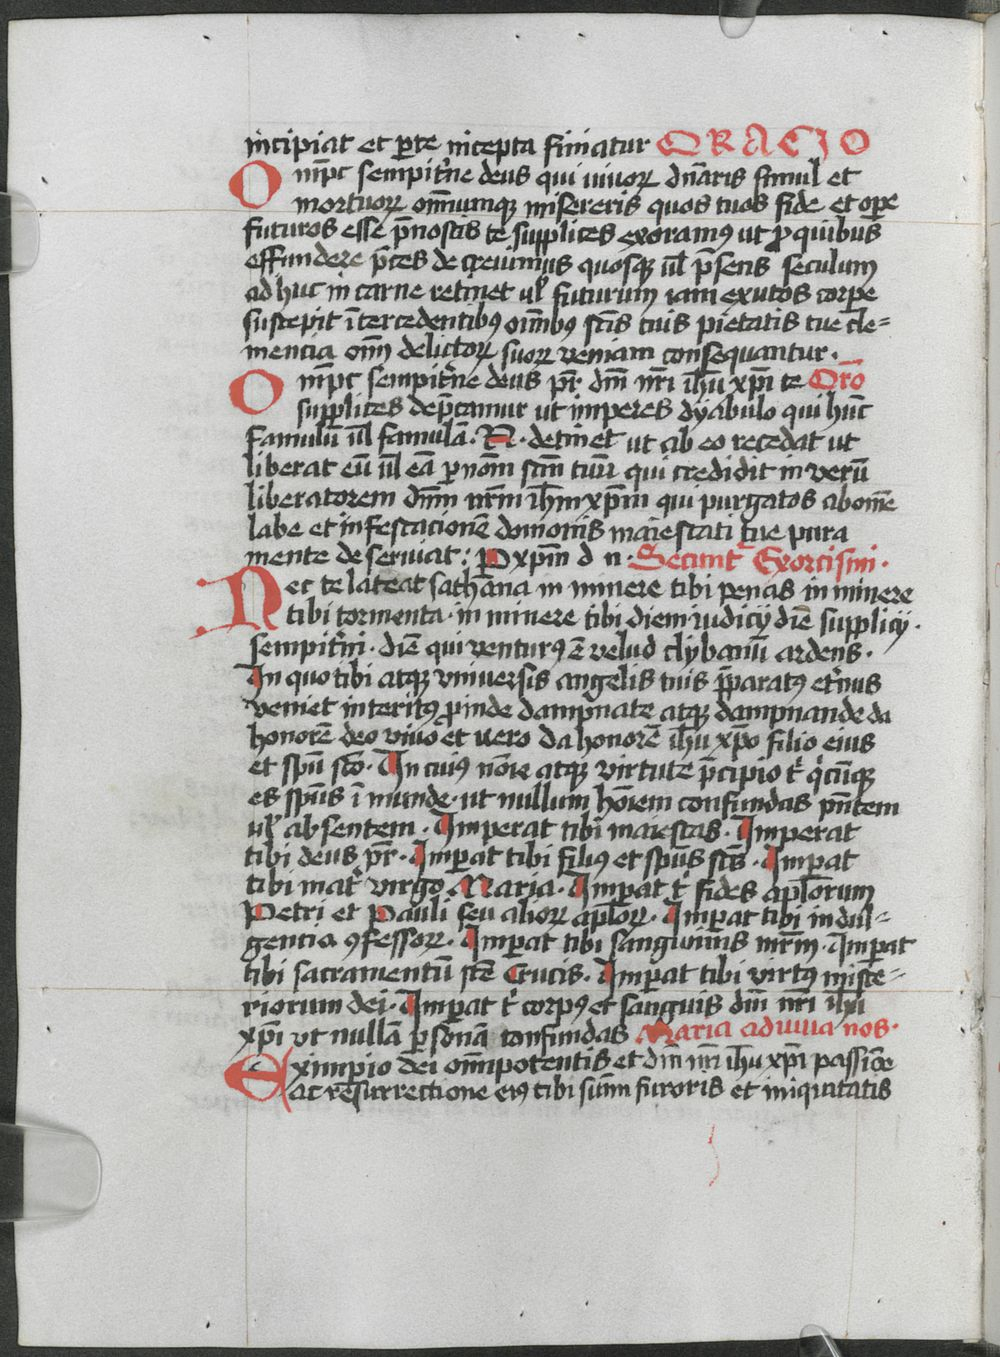 incipiat et per te incepta finiatur ORACIO
Omp̄c sempit̉ne deus qui viuoꝝ dn̄aris simul et
mortuoꝝ om̄niumqꝫ misereris quos tuos fide et oꝑe
futuros esse p̄nostis te supplices exoramꝰ ut ꝓ quibus
effundere p̄ces decreuimus quosqꝫ ul̄ p̄sens seculum
adhuc in carne retinet ul̉ futurum iam exutos corꝑe
suscepit ī tercedentibꝰ om̄ibꝰ sc̄is tuis pietatis tue cle=
mencia om̄ delictoꝝ suoꝝ veniam consequantur.
Omp̄c sempit̉ne deus pr̄ dn̄i nr̄i ih̄u xp̄i te Oro̅
supplices dep̄camur ut imperes dyabulo qui hūc
famulū ul̄ famulā . N . detinet ut ab eo recedat ut
liberat eū ul̄ eā ꝑ nom̄ sc̄m tuū qui credidit in verū
liberatorem dn̄m nr̄m ih̄m xp̄m qui purgatos ab om̄e
labe et infestacionē demonis maiestati tue pura
mente deseruiat : P xp̄m d n . Secunt̉ Exorcismi .
Nec te lateat sathana in minere tibi penas in minere
tibi tormenta . in minere tibi diem iudicij diē supplicij .
sempit̉ni . diē qui venturꝰ ē velud clybanū ardens .
In quo tibi atqꝫ vniuersis angelis tuis p̄paratꝰ et̉nus
veniet interitꝰ ꝓinde dampnate atqꝫ dampnande da
honorē deo viuo et uero da honorē ih̄u xp̄o filio eius
et spū sc̄o . In cuiꝰ noīe atqꝫ virtute p̄cipio t̉ q̉cūqꝫ
es sp̄us ī munde . ut nullum hoīem confundas pn̄tem
ul̉ absentem . Imperat tibi maiestas . Imperat
tibi deus pr̄ . Imꝑat tibi filiꝰ et sp̄us sc̄s . Imꝑat
tibi mat̉ virgo Maria . Imꝑat t̉ fides apl̄orum
Petri et Pauli seu alioꝝ apl̄oꝝ . Imꝑat tibi indul=
gencia ꝯfessoꝝ . Imꝑat tibi sangwinis mr̄m . Imꝑat
tibi sacramentū sc̄e Crucis . Imꝑat tibi virtus miste=
riorum dei . Imꝑat t̉ corpꝰ et sanguis dn̄i nr̄i ih̄u
xp̄i vt nullā ꝑsonā confundas Maria adiuua nos .
Ex impio dei om̄ipotentis et dn̄i nr̄i ih̄u xp̄i passiōe
ac resurrectione eiꝰ tibi furoris et iniquitatis